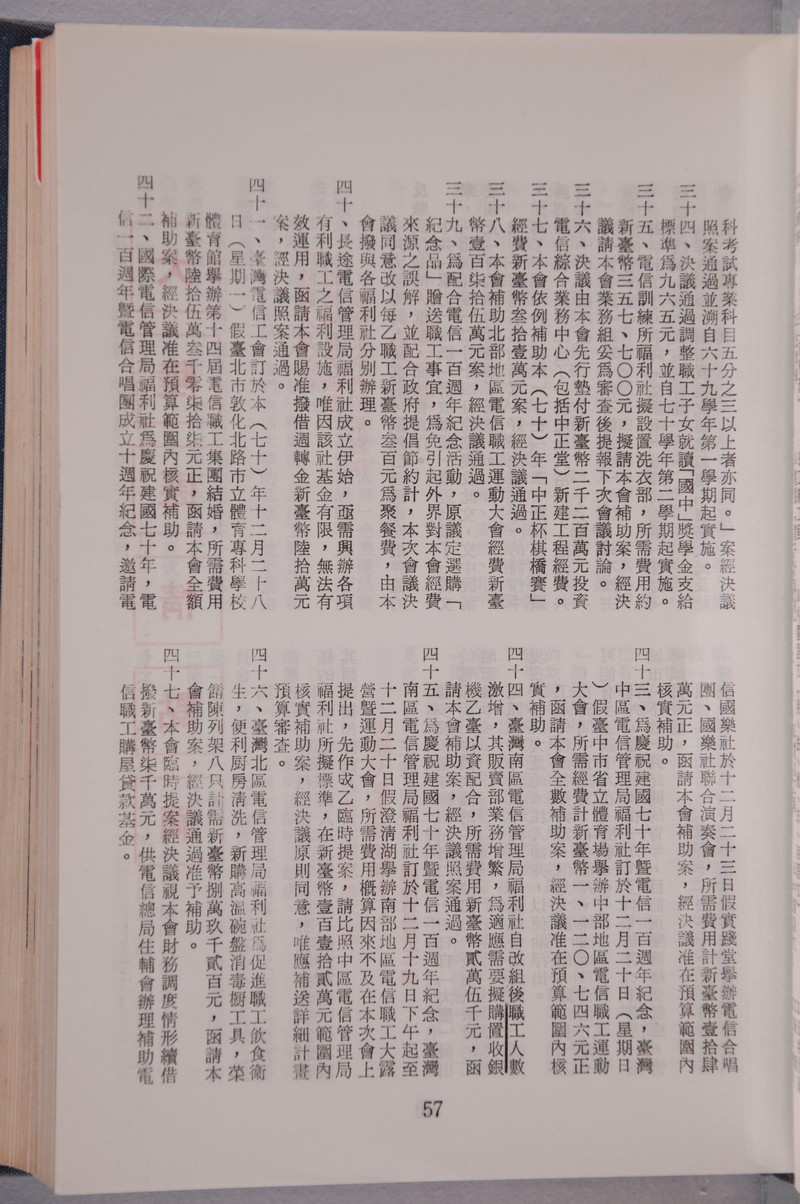 科考試專業科目五分之三以上者亦同。」案經決議
照案通過並溯自六十九學年第一學期起實施。
三十四、決議通過調整職工子女就讀「國中」獎學金支給
標準爲九六五元，並自七十學年第二學期起實施。
三十五、電信訓練所福利社擬設置洗衣部，所需費用約
新臺幣三五七、七〇〇元，擬請本會補助案，經決
議請本會業務組妥爲審查後提報下次會議討論。
三十六、決議由本會先行墊付新臺幣二千二百萬元投資
電信綜合業務中心（包括中正堂）新建工程經費。
三十七、本會依例補助本（七十）年「中正杯棋橋賽」
經費新臺幣叁拾壹萬元案，經決議通過。
三十八、本會補助北部地區電信職工運動大會經費新臺
幣壹百柒拾伍萬元案，經決議通過。
三十九、爲配合電信一百週年紀念活動，原議定選購「
紀念品」贈送職工事宜，爲免引起外界對本會經費
來源之誤解，並配合政府提倡節約計，本次會議決
議同意改以每乙職工新臺幣叁百元爲聚餐費，由本
會撥與各福利社分別辦理。
四十、長途電信管理局福利社成立伊始，亟需興辦各項
有利職工之福利設施，唯因該社基金有限，無法有
效運用，函請本會賜准撥借週轉金新臺幣陸拾萬元
案，經決議照案通過。
四十一、臺灣電信工會訂於本（七十）年十二月二十八
日（星期一）假臺北市敦化北路市立體育專科學校
體育館舉辦第十四屆電信職工集團結婚，所需費用
新臺幣陸拾伍萬叁千零柒拾柒元正，函請本會全額
補助案，經決議准在預算範圍內核實補助。
四十二、國際電信管理局福利社爲慶祝建國七十年，電
信一百週年暨電信合唱團成立十週年紀念，邀請電
信國樂社於十二月二十三日假實踐堂舉辦電信合唱
團、國樂社聯合演奏會，所需費用計新臺幣壹拾肆
萬元正，函請本會補助案，經決議准在預算範圍內
核實補助。
四十三、爲慶祝建國七十年暨電信一百週年紀念，臺灣
中區電信管理局福利社訂於十二月二十日（星期日
）假臺中市省立體育場舉辦中部地區電信職工運動
大會，所需經費計新臺幣一、一二〇、七四六元正
，函請本會全數補助案，經決議准在預算範圍內核
實補助。
四十四、臺灣南區電信管理局福利社自改組後職工人數
激增，其販賣部業務增繁，爲適應需要擬購置收銀
機乙臺以資配合，所需費用新臺幣貳萬伍千元，函
請本會補助案，經決議照案通過。
四十五、爲慶祝建國七十年暨電信一百週年紀念，臺灣
南區電信管理局福利社訂於十二月十九日下午起至
十二月二十日假澄清湖舉辦南部地區電信職工大露
營暨運動大會，所需費用概算因來不及在本次會上
提出，先作成乙臨時提案，請比照中區電信管理局
福利社所擬標準，在新臺幣壹百壹拾貳萬元範圍內
核實補助案，經決議原則同意，唯應補送詳細計畫
預算審查。
四十六、臺灣北區電信管理局福利社爲促進職工飲食衛
生，便利厨房清洗，新購高溫碗盤消毒櫥工具，菜
餚陳列架八只計需新臺幣捌萬玖千貳百元，函請本
會補助案，經決議通過准予補助。
四十七、本會臨時提案經決議視本會財務調度情形續借
撥新臺幣柒千萬元，供電信總局住輔會辦理補助電
信職工購屋貸款基金。
57